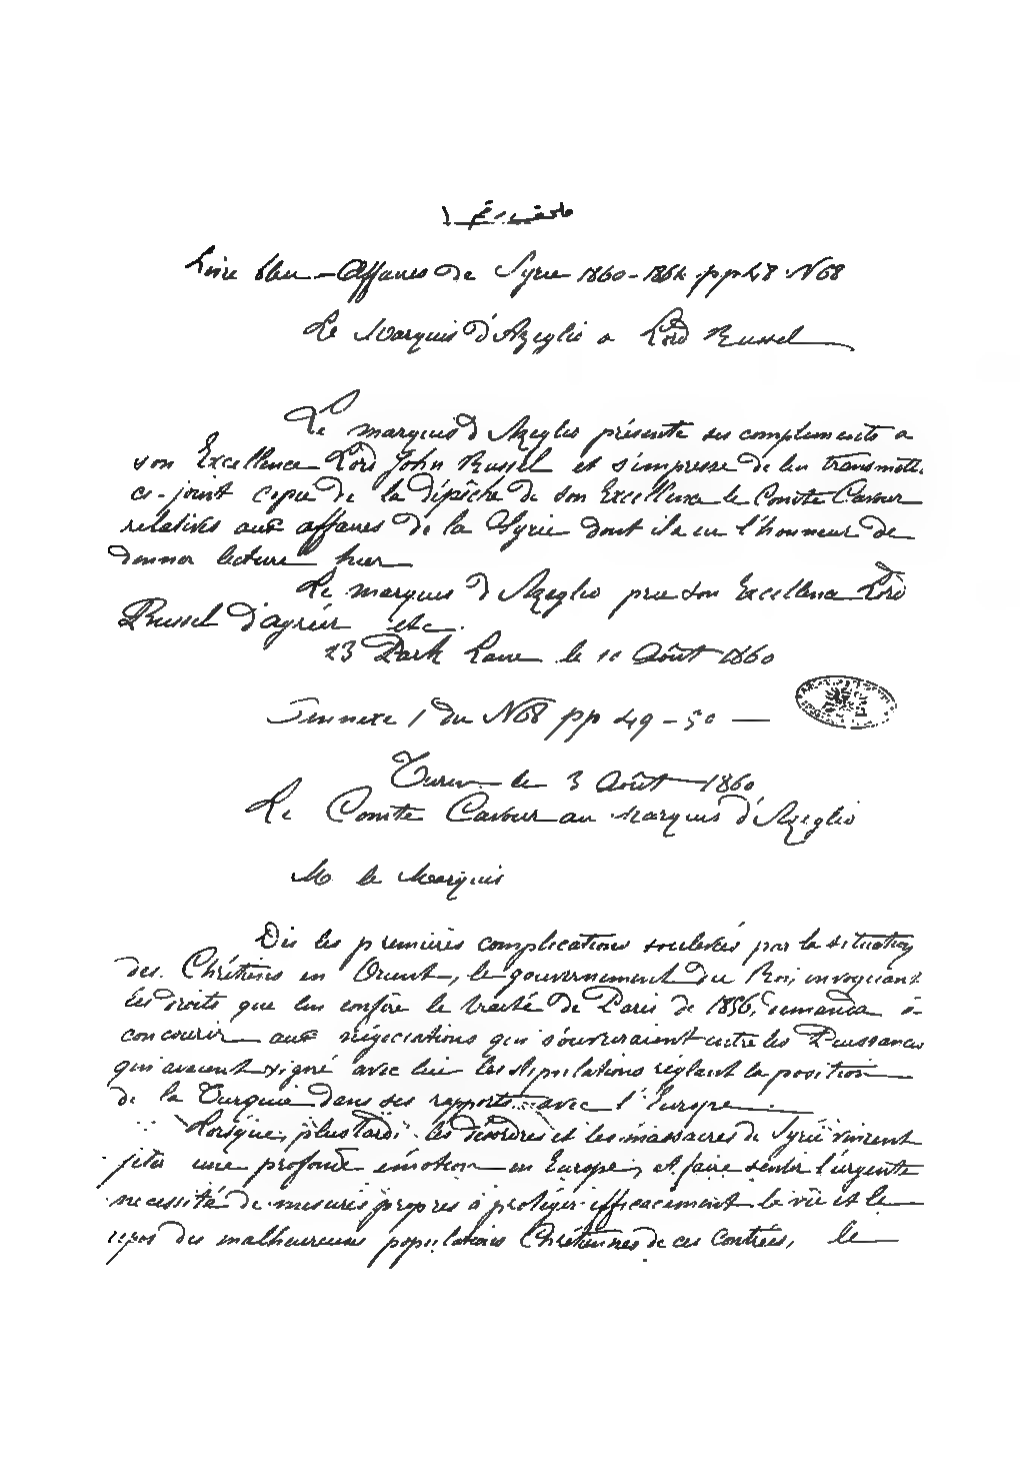 ملحق رقم ١
Livre bleu – Affaires de Syrie 1860-1861 pp 48 N 68
Le Marquis d'Azeglio a Lord Russel
Le marquis d Azeglio présente ses compliments a
son Excellence Lord John Russel et s'impresse de lui transmettre
ci-joint copie de la dépêche de son Excellence le Comte Cavour
relatives aux affaires de la Syrie dont il a eu l'honneur de
donner lecture hier
Le marquis d Azeglio prie son Excellence Lord
Russel d'agréér etc.
23 Park Lane le 10 Août 1860
Annexe 1 du N 68 pp 49-50 —
Turin le 3 Août 1860
Le Comte Cavour au Marquis d'Azeglio
M le Marquis
Dès les premières complications soulevées par la situation
des Chrétiens en Orient, le gouvernement du Roi, invoquant
les droits que lui confère le traité de Paris de 1856, demanda à
concourir aux négociations qui s'ouvriraient entre les Puissances
qui avaient signé avec lui les stipulations réglant la position
de la Turquie dans ses rapports avec l'Europe
Lorsque, plus tard, les désordres et les massacres de Syrie vinrent
jeter une profonde émotion en Europe, et faire sentir l'urgente
necessité de mesures propres à protéger efficacement la vie et le
repos des malheureuses populations Chrétiennes de ces contrées, le